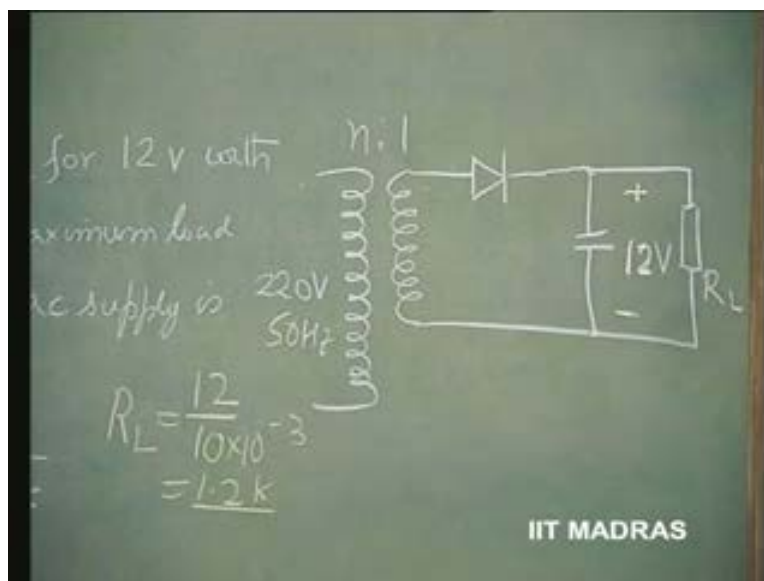 for 12 v with
maximum load
ac supply is
n:1
220V
50Hz
+
12V
-
RL
RL = 12 / 10×10⁻³
= 1.2k
IIT MADRAS